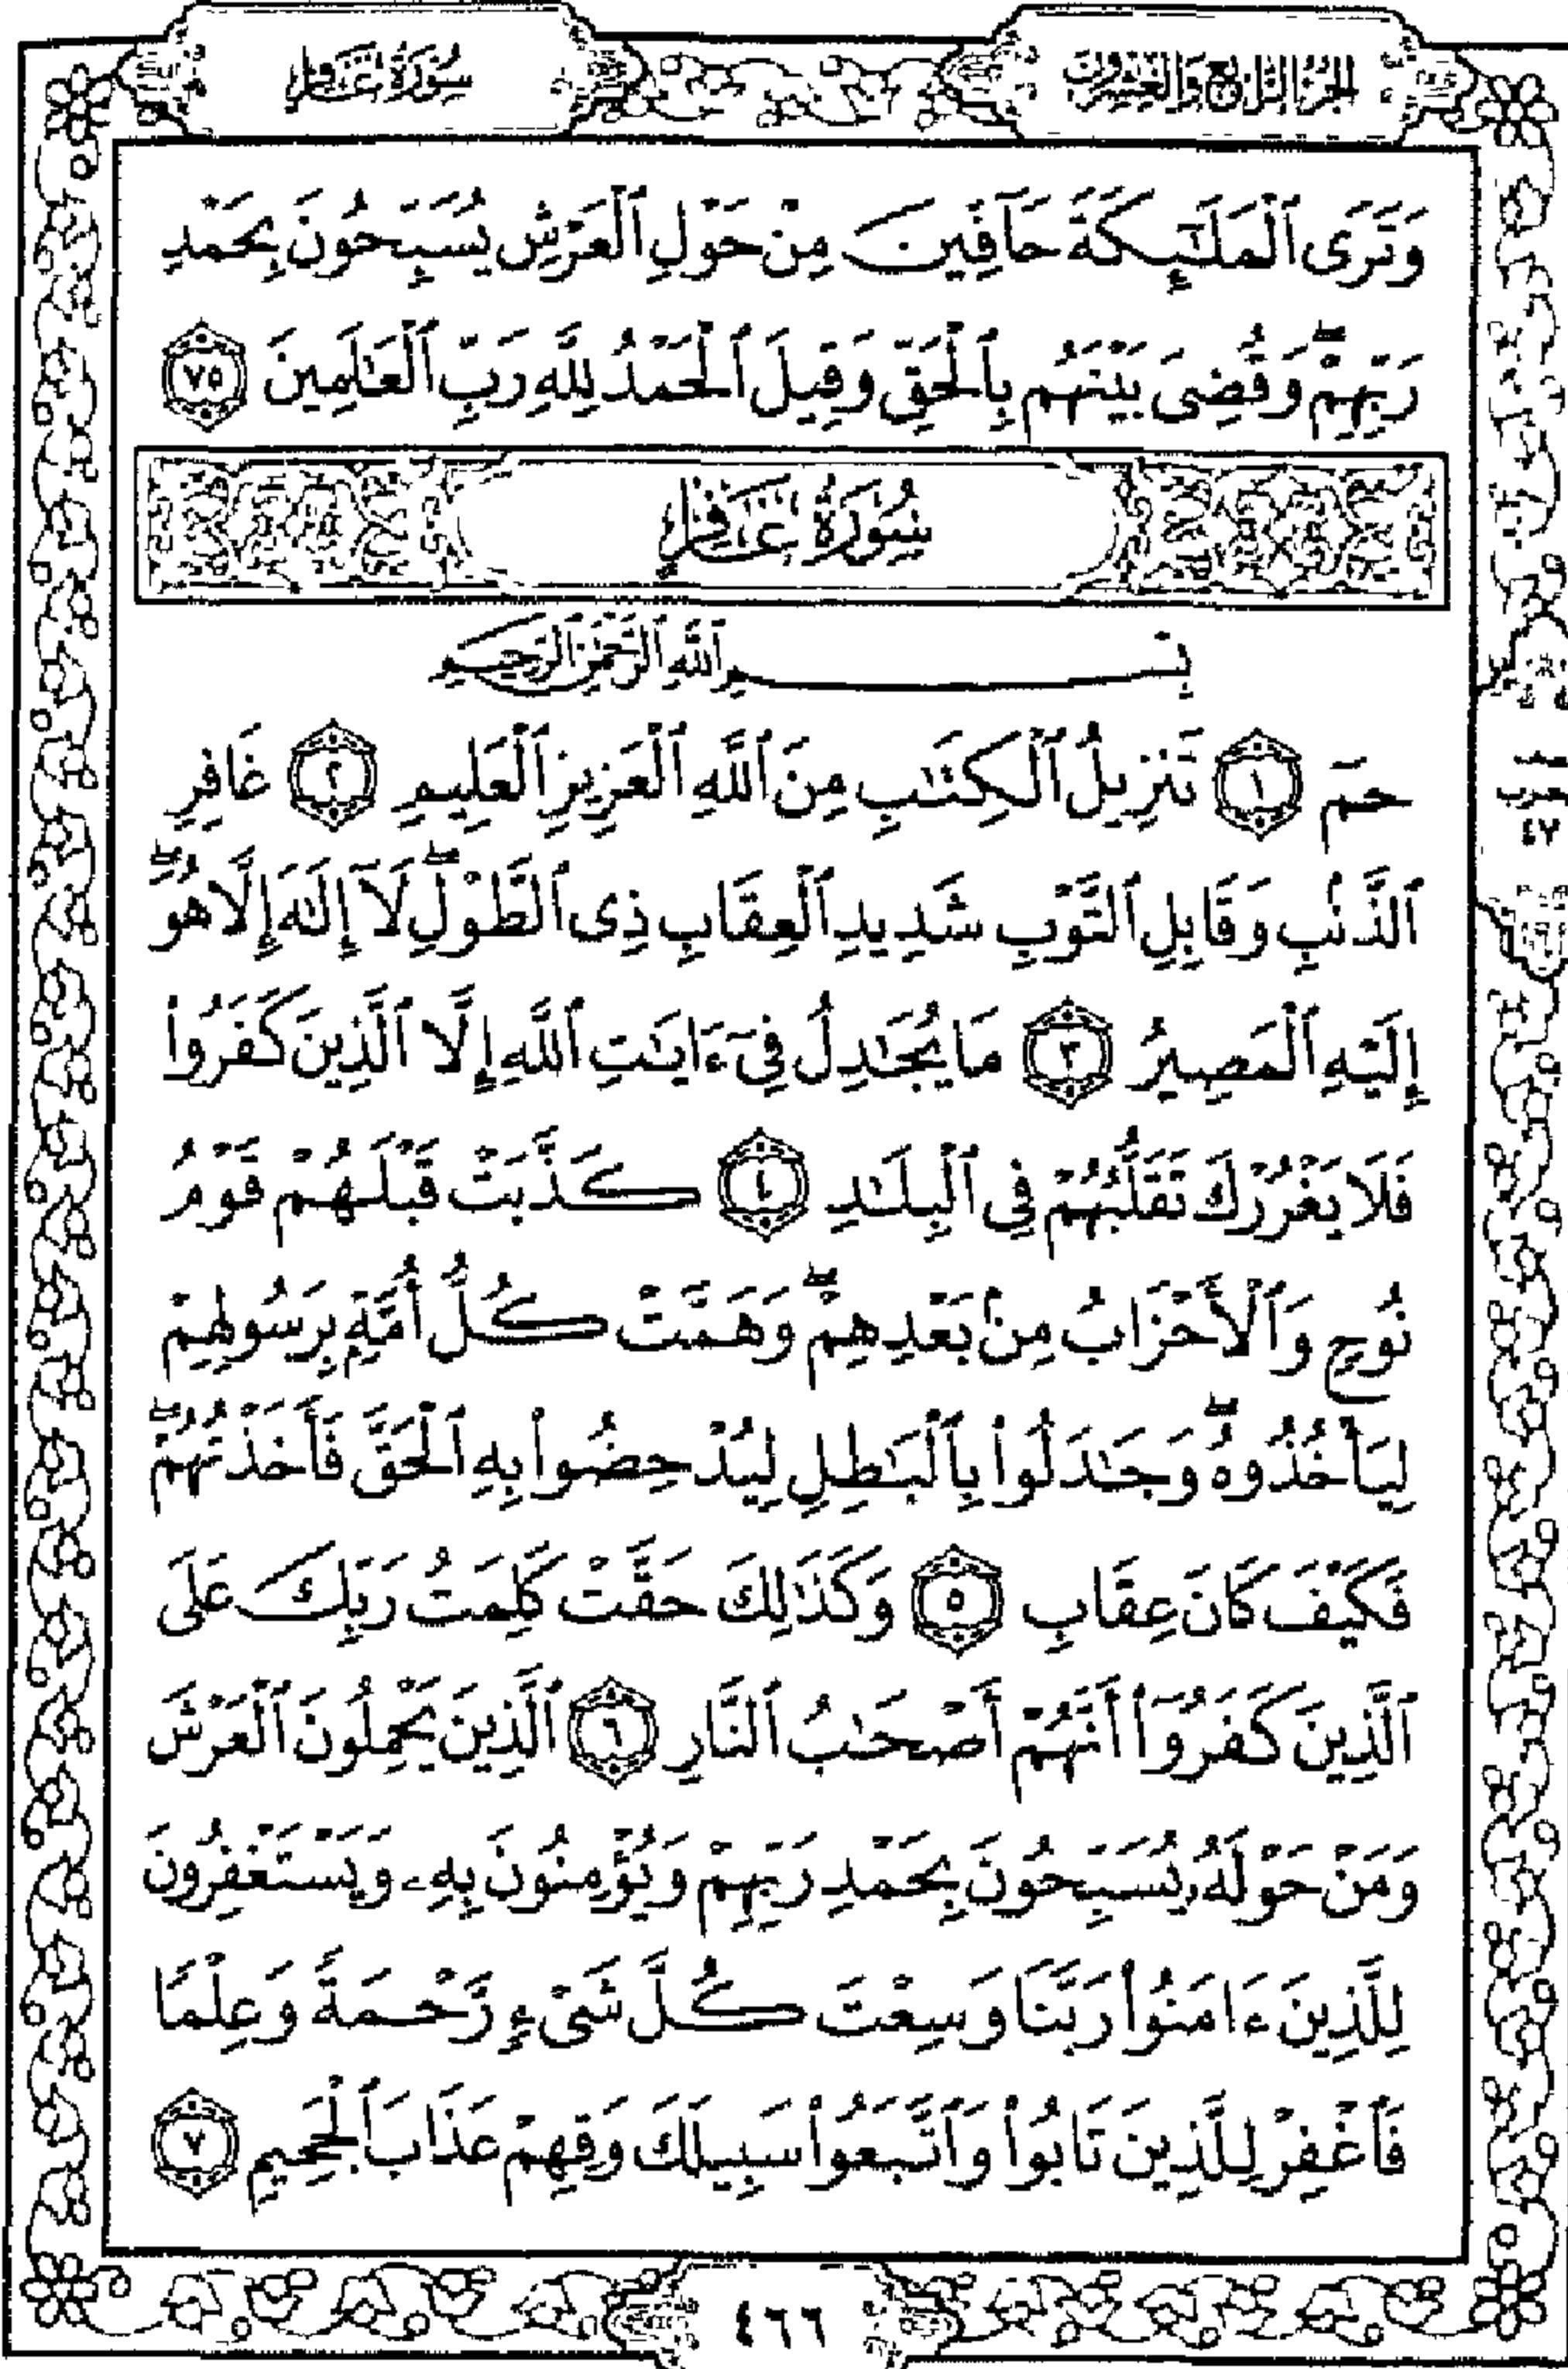 الجزء الرابع والعشرون
سُورَةُ غَافِرٍ
وَتَرَى ٱلْمَلَٰٓئِكَةَ حَآفِّينَ مِنْ حَوْلِ ٱلْعَرْشِ يُسَبِّحُونَ بِحَمْدِ
رَبِّهِمْۖ وَقُضِىَ بَيْنَهُم بِٱلْحَقِّ وَقِيلَ ٱلْحَمْدُ لِلَّهِ رَبِّ ٱلْعَٰلَمِينَ ٧٥
سُورَةُ غَافِرٍ
بِسْمِ ٱللَّهِ ٱلرَّحْمَٰنِ ٱلرَّحِيمِ
حمٓ ١ تَنزِيلُ ٱلْكِتَٰبِ مِنَ ٱللَّهِ ٱلْعَزِيزِ ٱلْعَلِيمِ ٢ غَافِرِ
ٱلذَّنۢبِ وَقَابِلِ ٱلتَّوْبِ شَدِيدِ ٱلْعِقَابِ ذِى ٱلطَّوْلِۖ لَآ إِلَٰهَ إِلَّا هُوَۖ
إِلَيْهِ ٱلْمَصِيرُ ٣ مَا يُجَٰدِلُ فِىٓ ءَايَٰتِ ٱللَّهِ إِلَّا ٱلَّذِينَ كَفَرُوا۟
فَلَا يَغْرُرْكَ تَقَلُّبُهُمْ فِى ٱلْبِلَٰدِ ٤ كَذَّبَتْ قَبْلَهُمْ قَوْمُ
نُوحٍ وَٱلْأَحْزَابُ مِنۢ بَعْدِهِمْۖ وَهَمَّتْ كُلُّ أُمَّةٍۭ بِرَسُولِهِمْ
لِيَأْخُذُوهُۖ وَجَٰدَلُوا۟ بِٱلْبَٰطِلِ لِيُدْحِضُوا۟ بِهِ ٱلْحَقَّ فَأَخَذْتُهُمْۖ
فَكَيْفَ كَانَ عِقَابِ ٥ وَكَذَٰلِكَ حَقَّتْ كَلِمَتُ رَبِّكَ عَلَى
ٱلَّذِينَ كَفَرُوٓا۟ أَنَّهُمْ أَصْحَٰبُ ٱلنَّارِ ٦ ٱلَّذِينَ يَحْمِلُونَ ٱلْعَرْشَ
وَمَنْ حَوْلَهُۥ يُسَبِّحُونَ بِحَمْدِ رَبِّهِمْ وَيُؤْمِنُونَ بِهِۦ وَيَسْتَغْفِرُونَ
لِلَّذِينَ ءَامَنُوا۟ رَبَّنَا وَسِعْتَ كُلَّ شَىْءٍ رَّحْمَةً وَعِلْمًا
فَٱغْفِرْ لِلَّذِينَ تَابُوا۟ وَٱتَّبَعُوا۟ سَبِيلَكَ وَقِهِمْ عَذَابَ ٱلْجَحِيمِ ٧
٤٧
٤٦٦